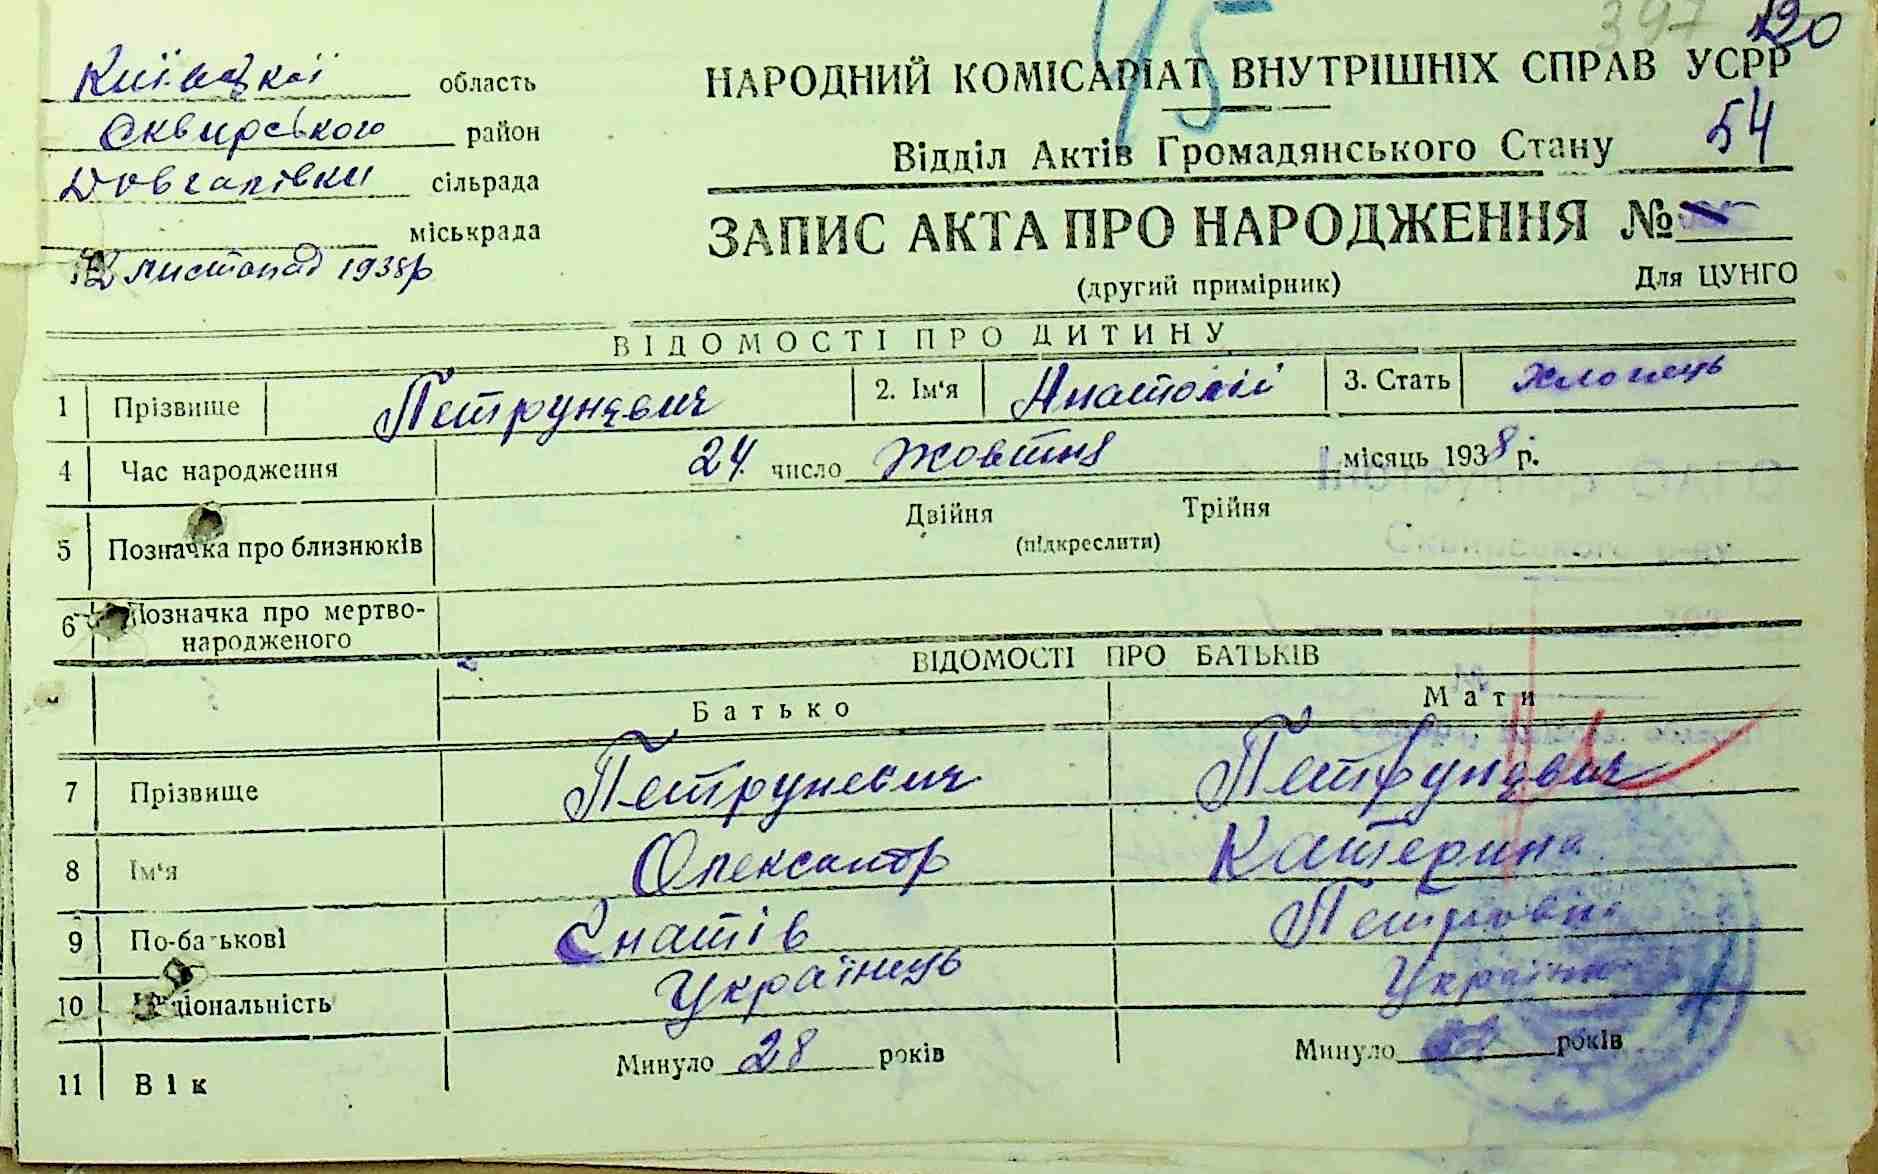 397 120
45
Київської область
Сквирського район
Довгалівки сільрада
міськрада
12 листопад 1938р
НАРОДНИЙ КОМІСАРІАТ ВНУТРІШНІХ СПРАВ УСРР
Відділ Актів Громадянського Стану 54
ЗАПИС АКТА ПРО НАРОДЖЕННЯ №
(другий примірник) Для ЦУНГО
ВІДОМОСТІ ПРО ДИТИНУ
1 Прізвище Петруневич 2. Ім'я Анатолій 3. Стать хлопець
4 Час народження 24 число жовтня місяць 1938 р.
5 Позначка про близнюків Двійня Трійня
(підкреслити)
6 Позначка про мертво-
народженого
ВІДОМОСТІ ПРО БАТЬКІВ
Батько Мати
7 Прізвище Петруневич Петруневич
8 Ім'я Олександр Катерина
9 По-батькові Гнатів Петровна
10 Національність Українець
11 Вік Минуло 28 років Минуло років